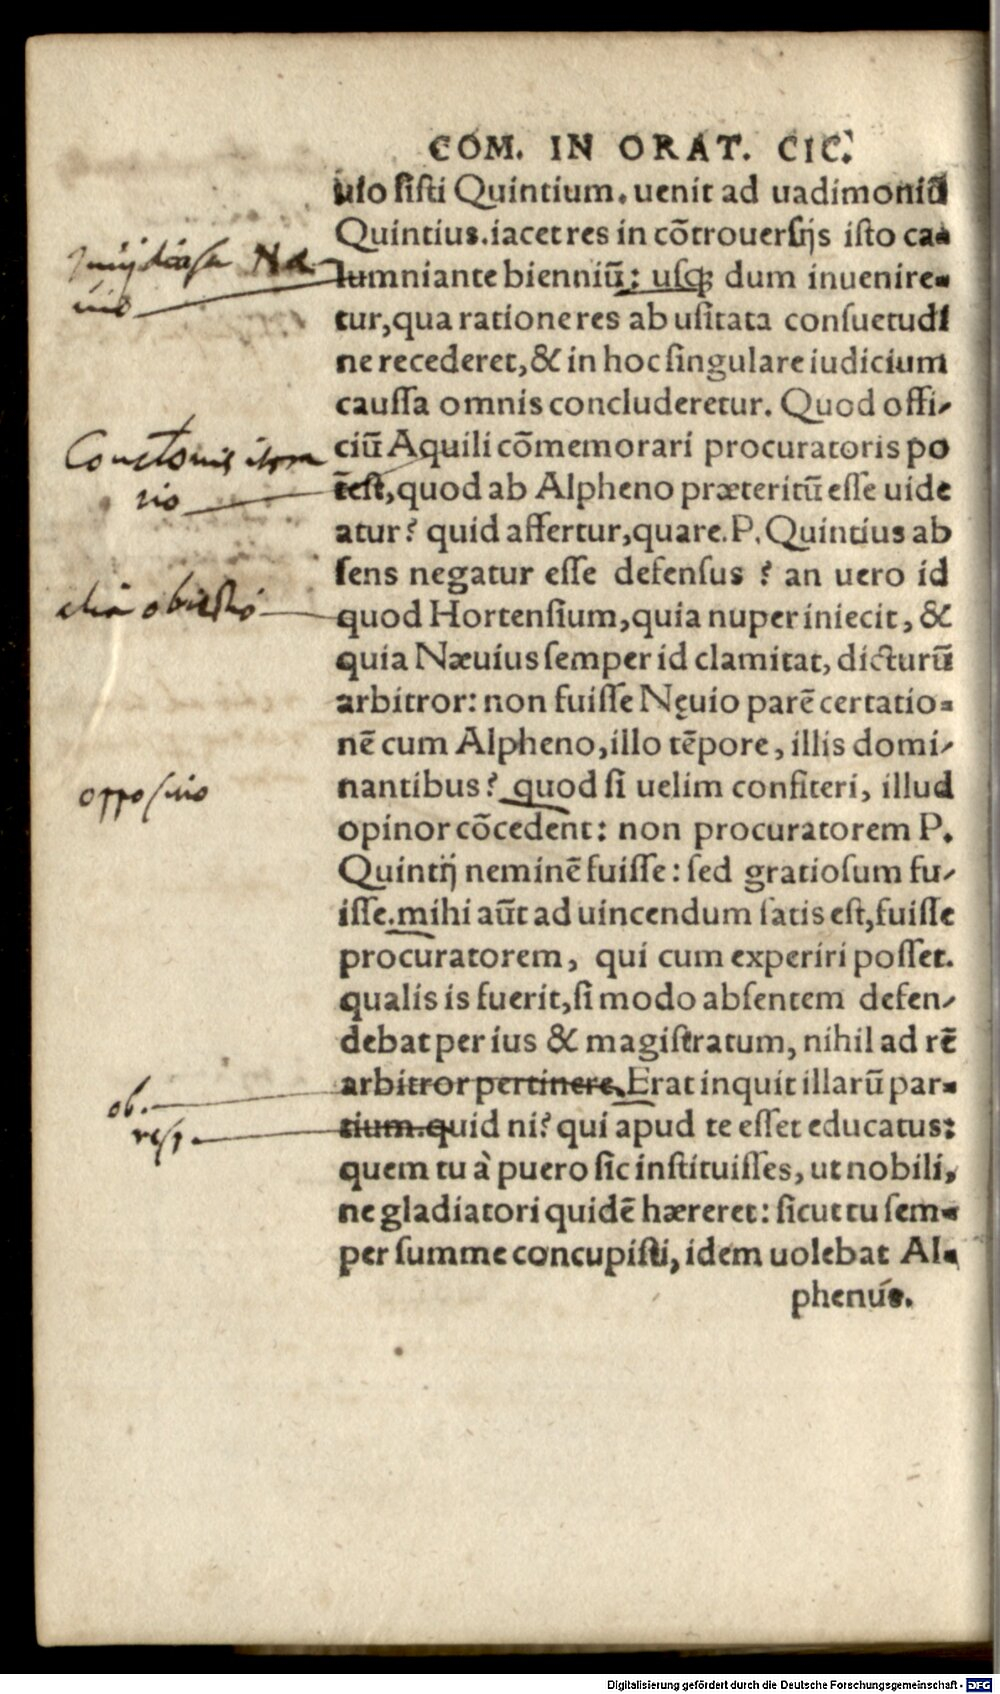 COM. IN ORAT. CIC.
uło sisti Quintium. uenit ad uadimoniũ
Quintius. iacet res in cõtrouersijs isto ca-
lumniante bienniũ: usq; dum inuenire-
tur, qua ratione res ab usitata consuetudi
ne recederet, & in hoc singulare iudicium
caussa omnis concluderetur. Quod offi-
ciũ Aquili cõmemorari procuratoris po
test, quod ab Alpheno præteritũ esse uide
atur? quid affertur, quare. P. Quintius ab
sens negatur esse defensus? an uero id
quod Hortensium, quia nuper iniecit, &
quia Næuius semper id clamitat, dicturũ
arbitror: non fuisse Nęuio parẽ certatio-
nẽ cum Alpheno, illo tẽpore, illis domi-
nantibus? quod si uelim confiteri, illud
opinor cõcedent: non procuratorem P.
Quintij neminẽ fuisse: sed gratiosum fu-
isse. mihi aũt ad uincendum satis est, fuisse
procuratorem, qui cum experiri posset.
qualis is fuerit, si modo absentem defen-
debat per ius & magistratum, nihil ad rẽ
arbitror pertinere. Erat inquit illarũ par-
tium. quid ni? qui apud te esset educatus:
quem tu à puero sic instituisses, ut nobili,
ne gladiatori quidẽ hæreret: sicut tu sem-
per summe concupisti, idem uolebat Al-
phenus.
alia obiectio
opposi​tio
ob.
resp.
Digitalisierung gefördert durch die Deutsche Forschungsgemeinschaft - DFG